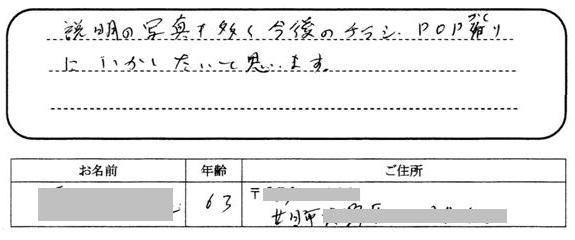 説明の写真も多く今後のチラシ、POP作り
にいかしたいと思います。
お名前 年齢 ご住所
63 〒
廿日市